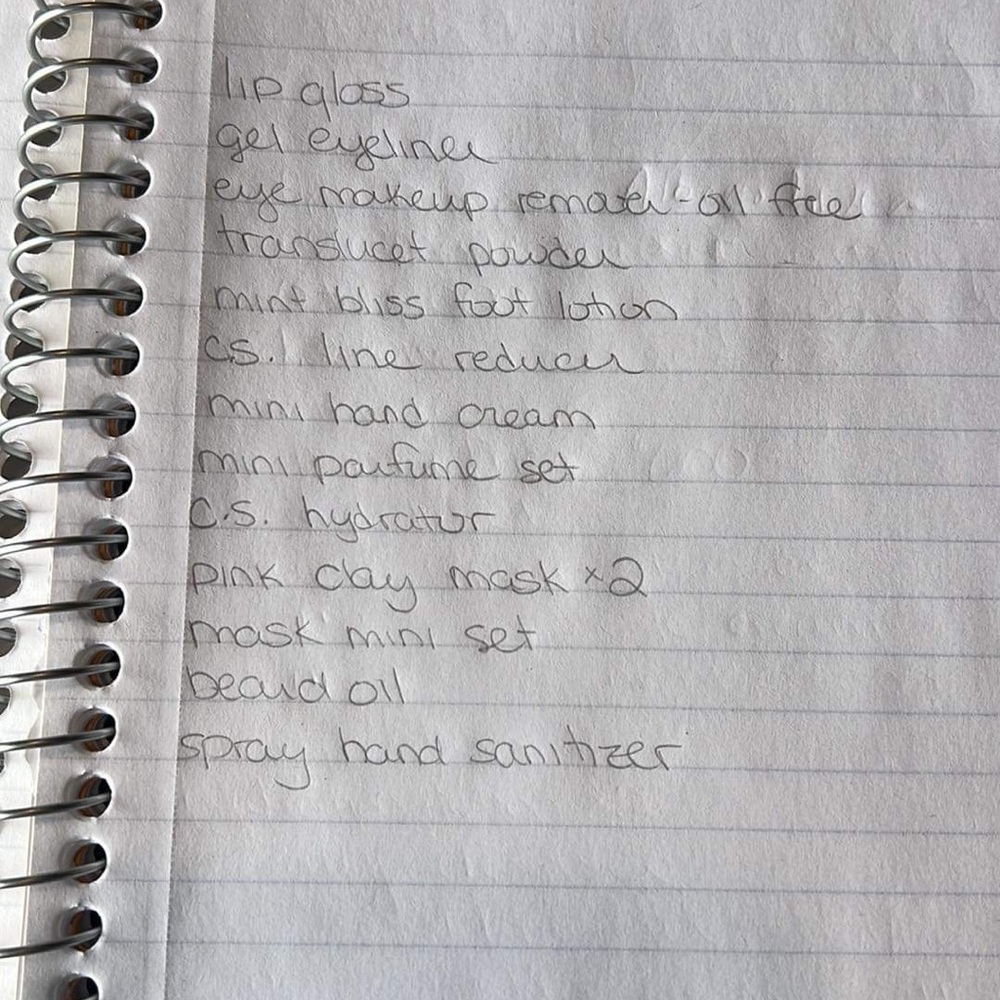 lip gloss
gel eyeliner
eye makeup remover - oil free
translucet powder
mint bliss foot lotion
c.s. line reducer
mini hand cream
mini parfume set
c.s. hydrator
pink clay mask x2
mask mini set
beard oil
spray hand sanitizer